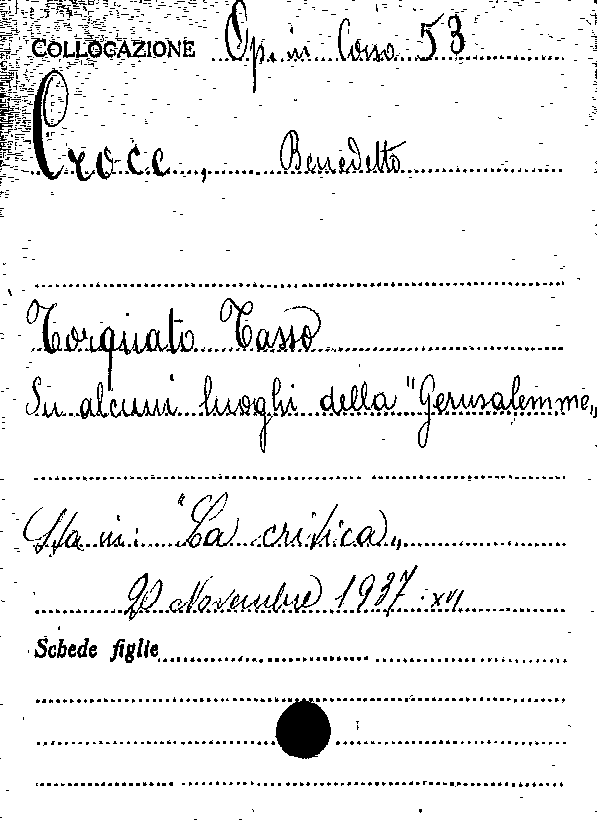 COLLOCAZIONE Op. in Cassa 53
Croce, Benedetto
Torquato Tasso
Su alcuni luoghi della "Gerusalemme„
Sta in: "La critica„
20 Novembre 1937. XVI
Schede figlie